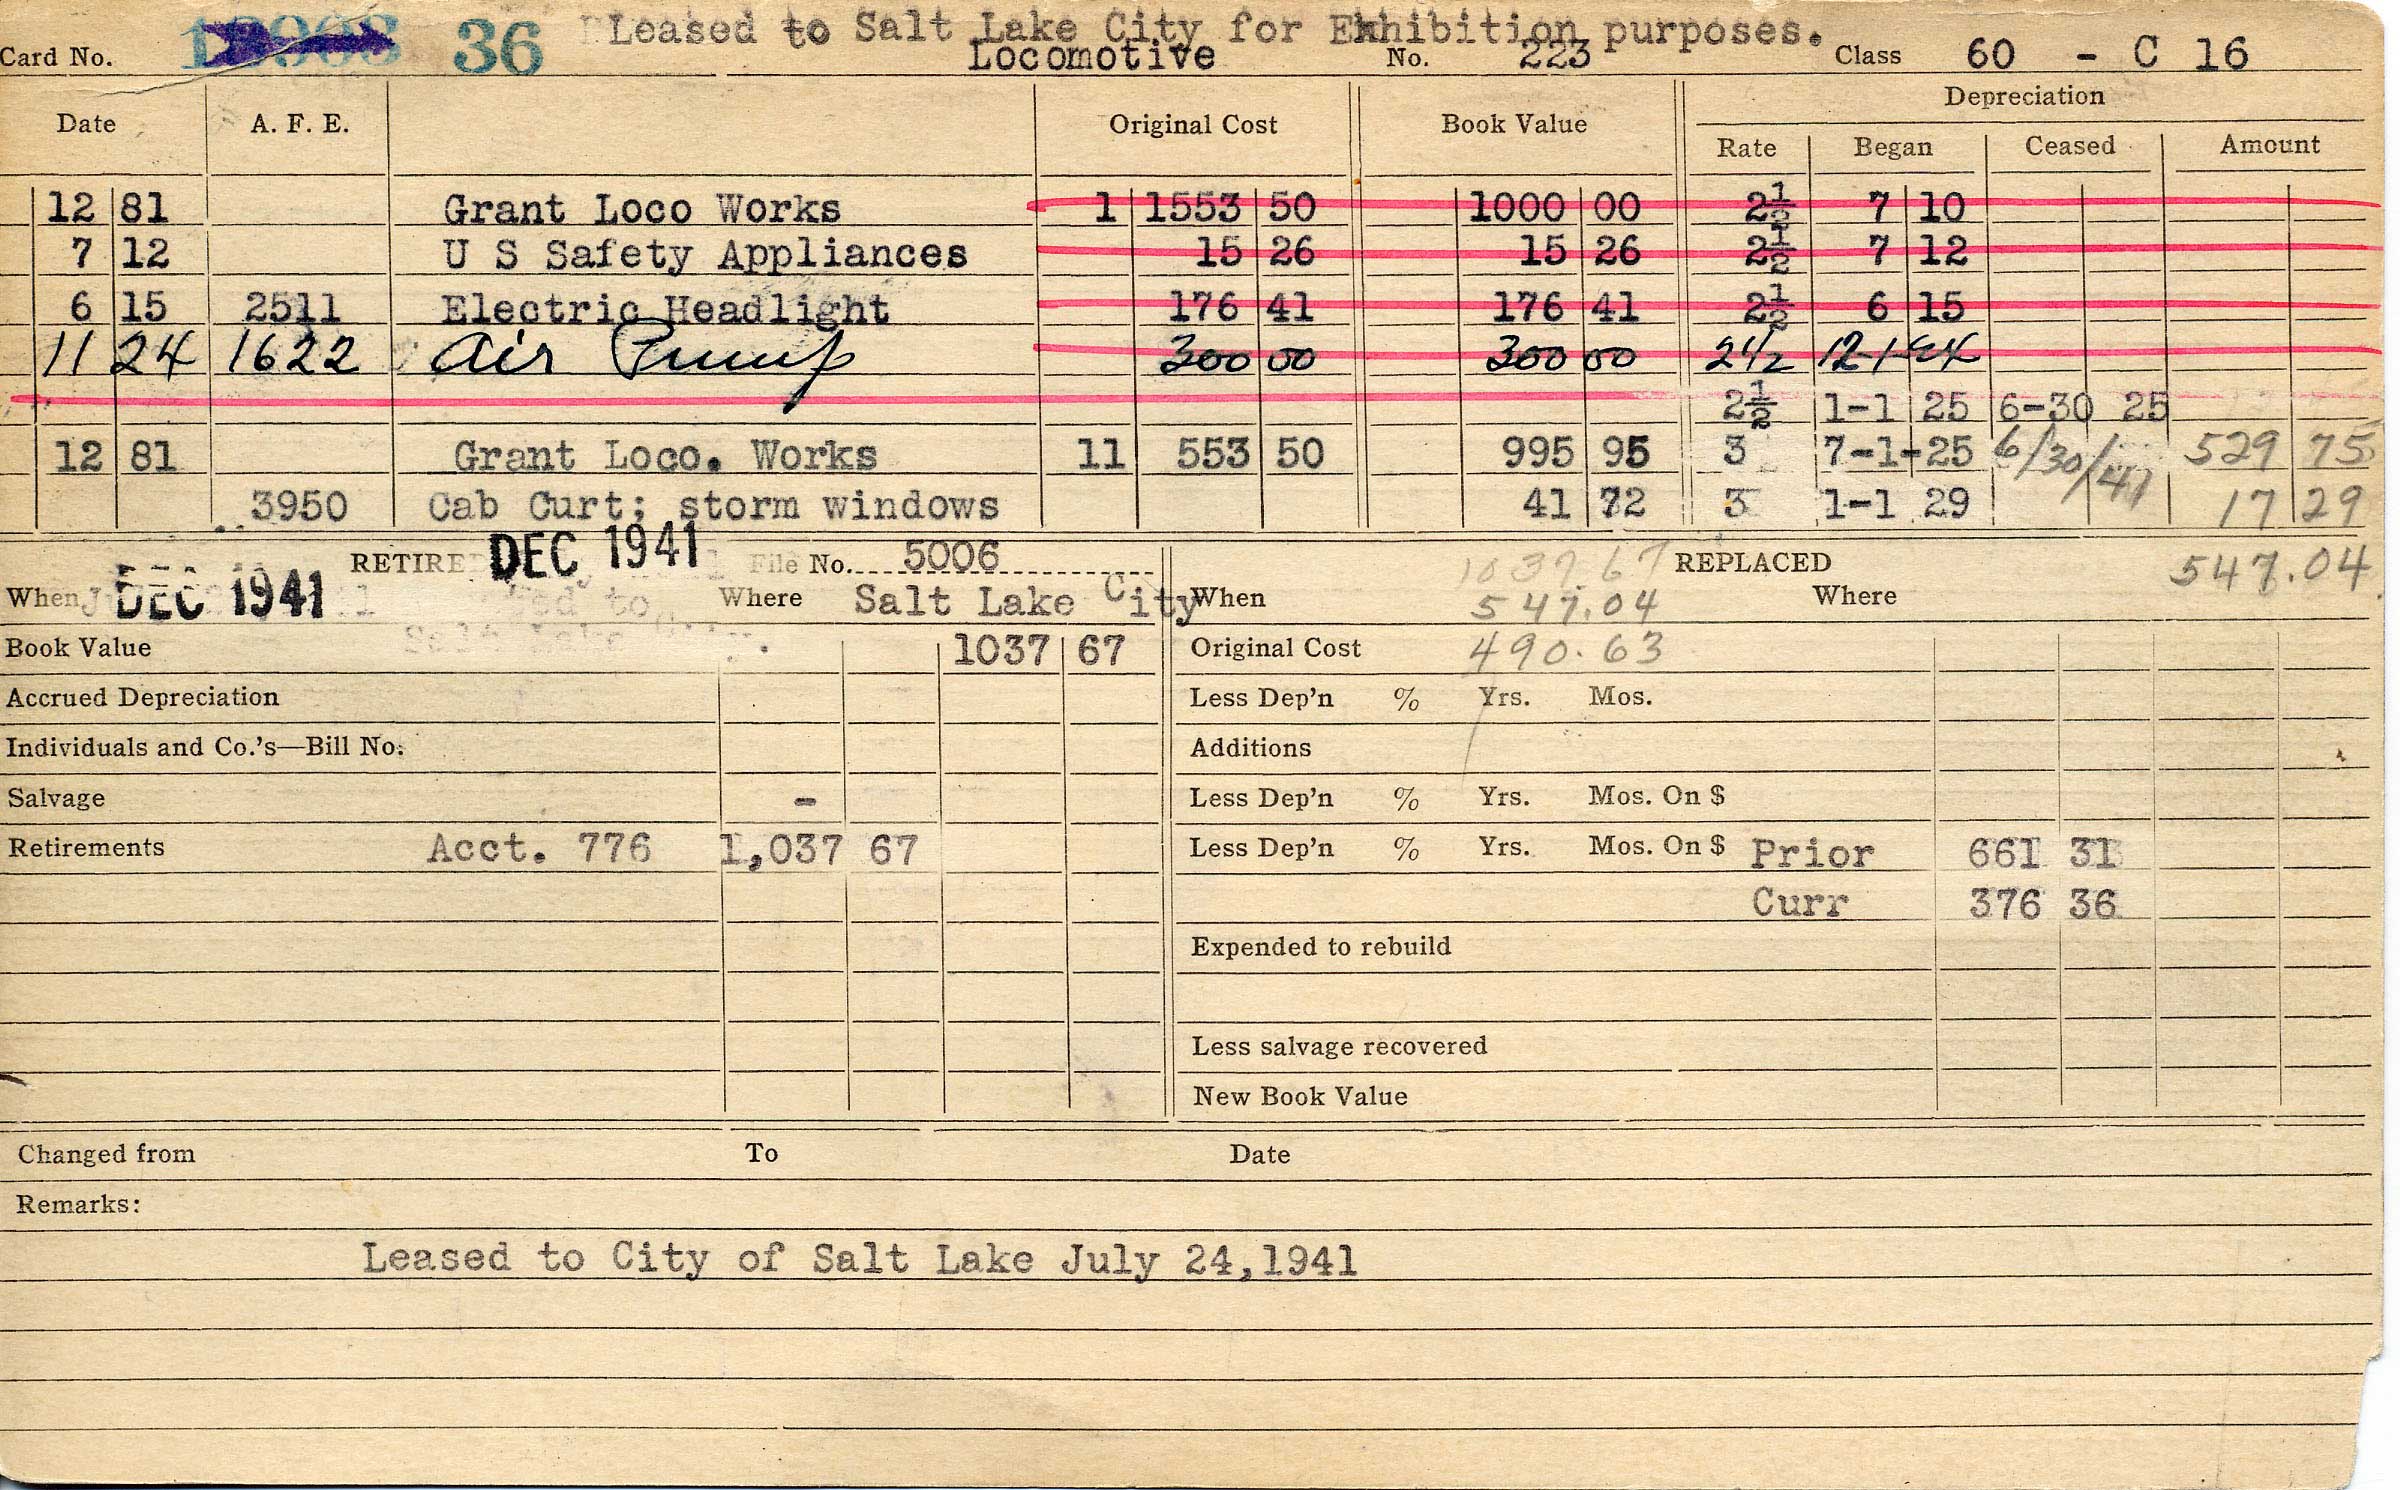 Leased to Salt Lake City for Exhibition purposes.
Card No. 36 Locomotive No. 223 Class 60 - C 16
Date A. F. E. Original Cost Book Value Depreciation
Rate Began Ceased Amount
12 81 Grant Loco Works 1 1553 50 1000 00 2½ 7 10
7 12 U S Safety Appliances 15 26 15 26 2½ 7 12
6 15 2511 Electric Headlight 176 41 176 41 2½ 6 15
11 24 1622 Air Pump 300 00 300 00 2½ 12-1-24
2½ 1-1 25 6-30 25
12 81 Grant Loco. Works 11 553 50 995 95 3 7-1-25 6/30/41 529 75
3950 Cab Curt; storm windows 41 72 3 1-1 29 17 29
RETIRE DEC 1941 File No. 5006 1037.67 REPLACED 547.04
When DEC 1941 Where Salt Lake City When 547.04 Where
Book Value 1037 67 Original Cost 490.63
Accrued Depreciation Less Dep'n % Yrs. Mos.
Individuals and Co.'s—Bill No. Additions
Salvage - Less Dep'n % Yrs. Mos. On $
Retirements Acct. 776 1,037 67 Less Dep'n % Yrs. Mos. On $ Prior 661 31
Curr 376 36
Expended to rebuild
Less salvage recovered
New Book Value
Changed from To Date
Remarks:
Leased to City of Salt Lake July 24,1941